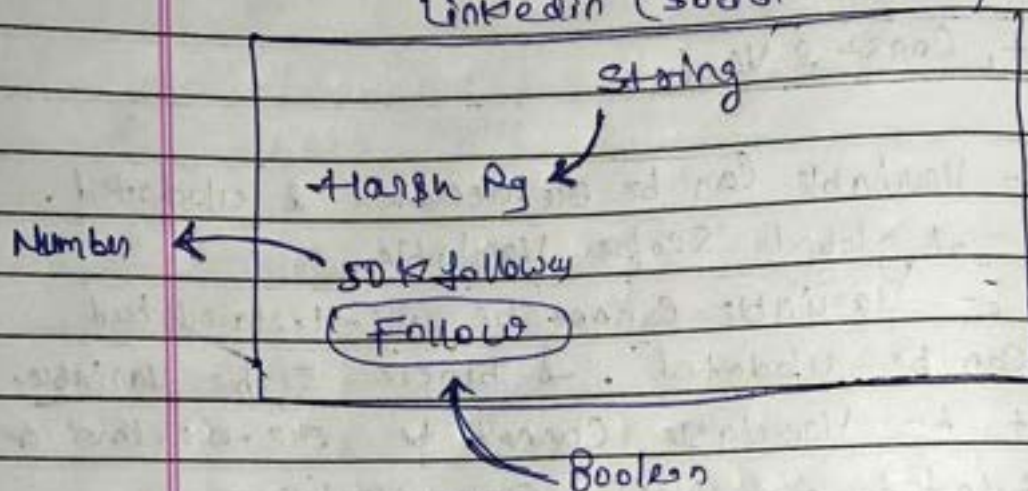 Linkedin (
String
Harsh Pg
Number
50K follower
Follow
Boolean